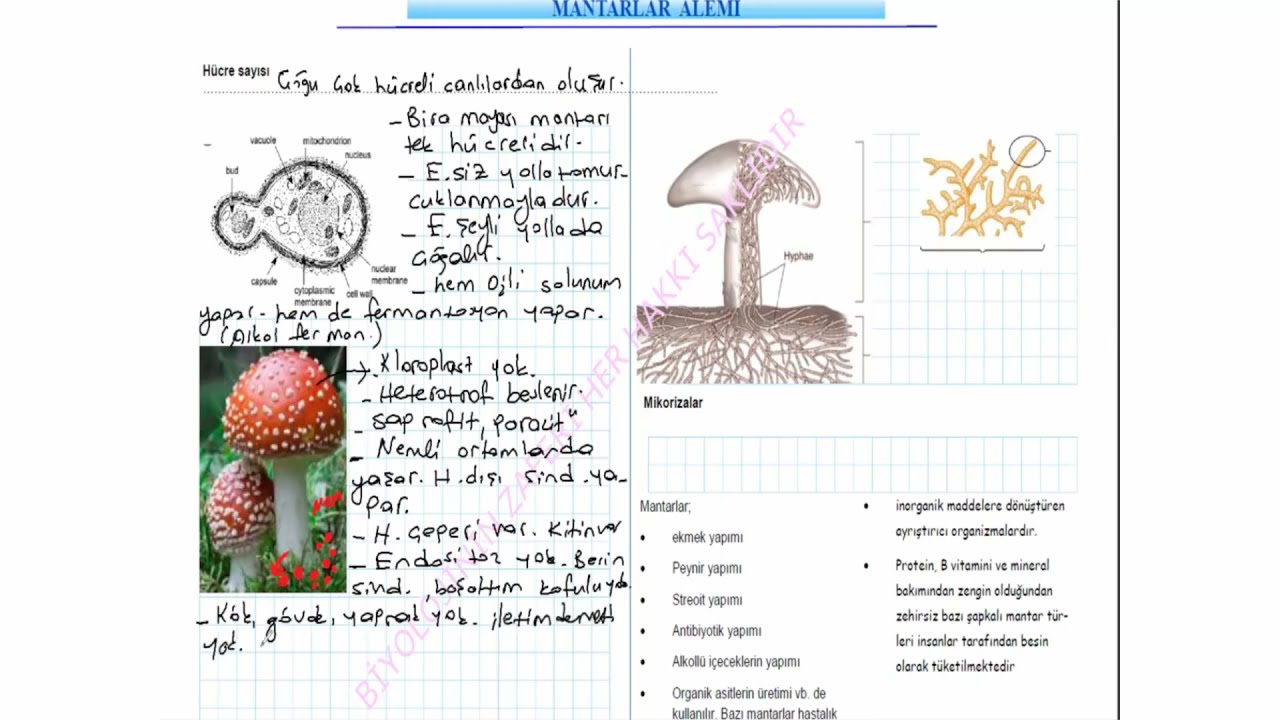 MANTARLAR ALEMİ
Hücre sayısı Çoğu çok hücreli canlılardan oluşur.
- Bira mayası mantarı
tek hücrelidir.
- E.siz yolla tomur-
cuklanmayladır.
- E. şeyli yollada
çoğalır.
- hem O2li solunum
yapar - hem de fermantasyon yapar.
(Alkol ferman.)
vacuole
mitochondrion
nucleus
bud
nuclear
membrane
capsule
cytoplasmic
membrane
cell wall
- Kloroplast yok.
- Heterotrof beslenir.
- Saprofit, parazit "
- Nemli ortamlarda
yaşar. H. dışı sind. ya-
par.
- H. çeperi var. Kitin var
- Endositoz yok. Besin
sind., boşaltım kofulu yok.
- Kök, gövde, yaprak yok. iletim demeti
yok.
Hyphae
Mikorizalar
Mantarlar;
• ekmek yapımı
• Peynir yapımı
• Streoit yapımı
• Antibiyotik yapımı
• Alkollü içeceklerin yapımı
• Organik asitlerin üretimi vb. de
kullanılır. Bazı mantarlar hastalık
• inorganik maddelere dönüştüren
ayrıştırıcı organizmalardır.
• Protein, B vitamini ve mineral
bakımından zengin olduğundan
zehirsiz bazı şapkalı mantar tür-
leri insanlar tarafından besin
olarak tüketilmektedir
BİYOLOJİNİN ZAFERİ HER HAKKI SAKLIDIR